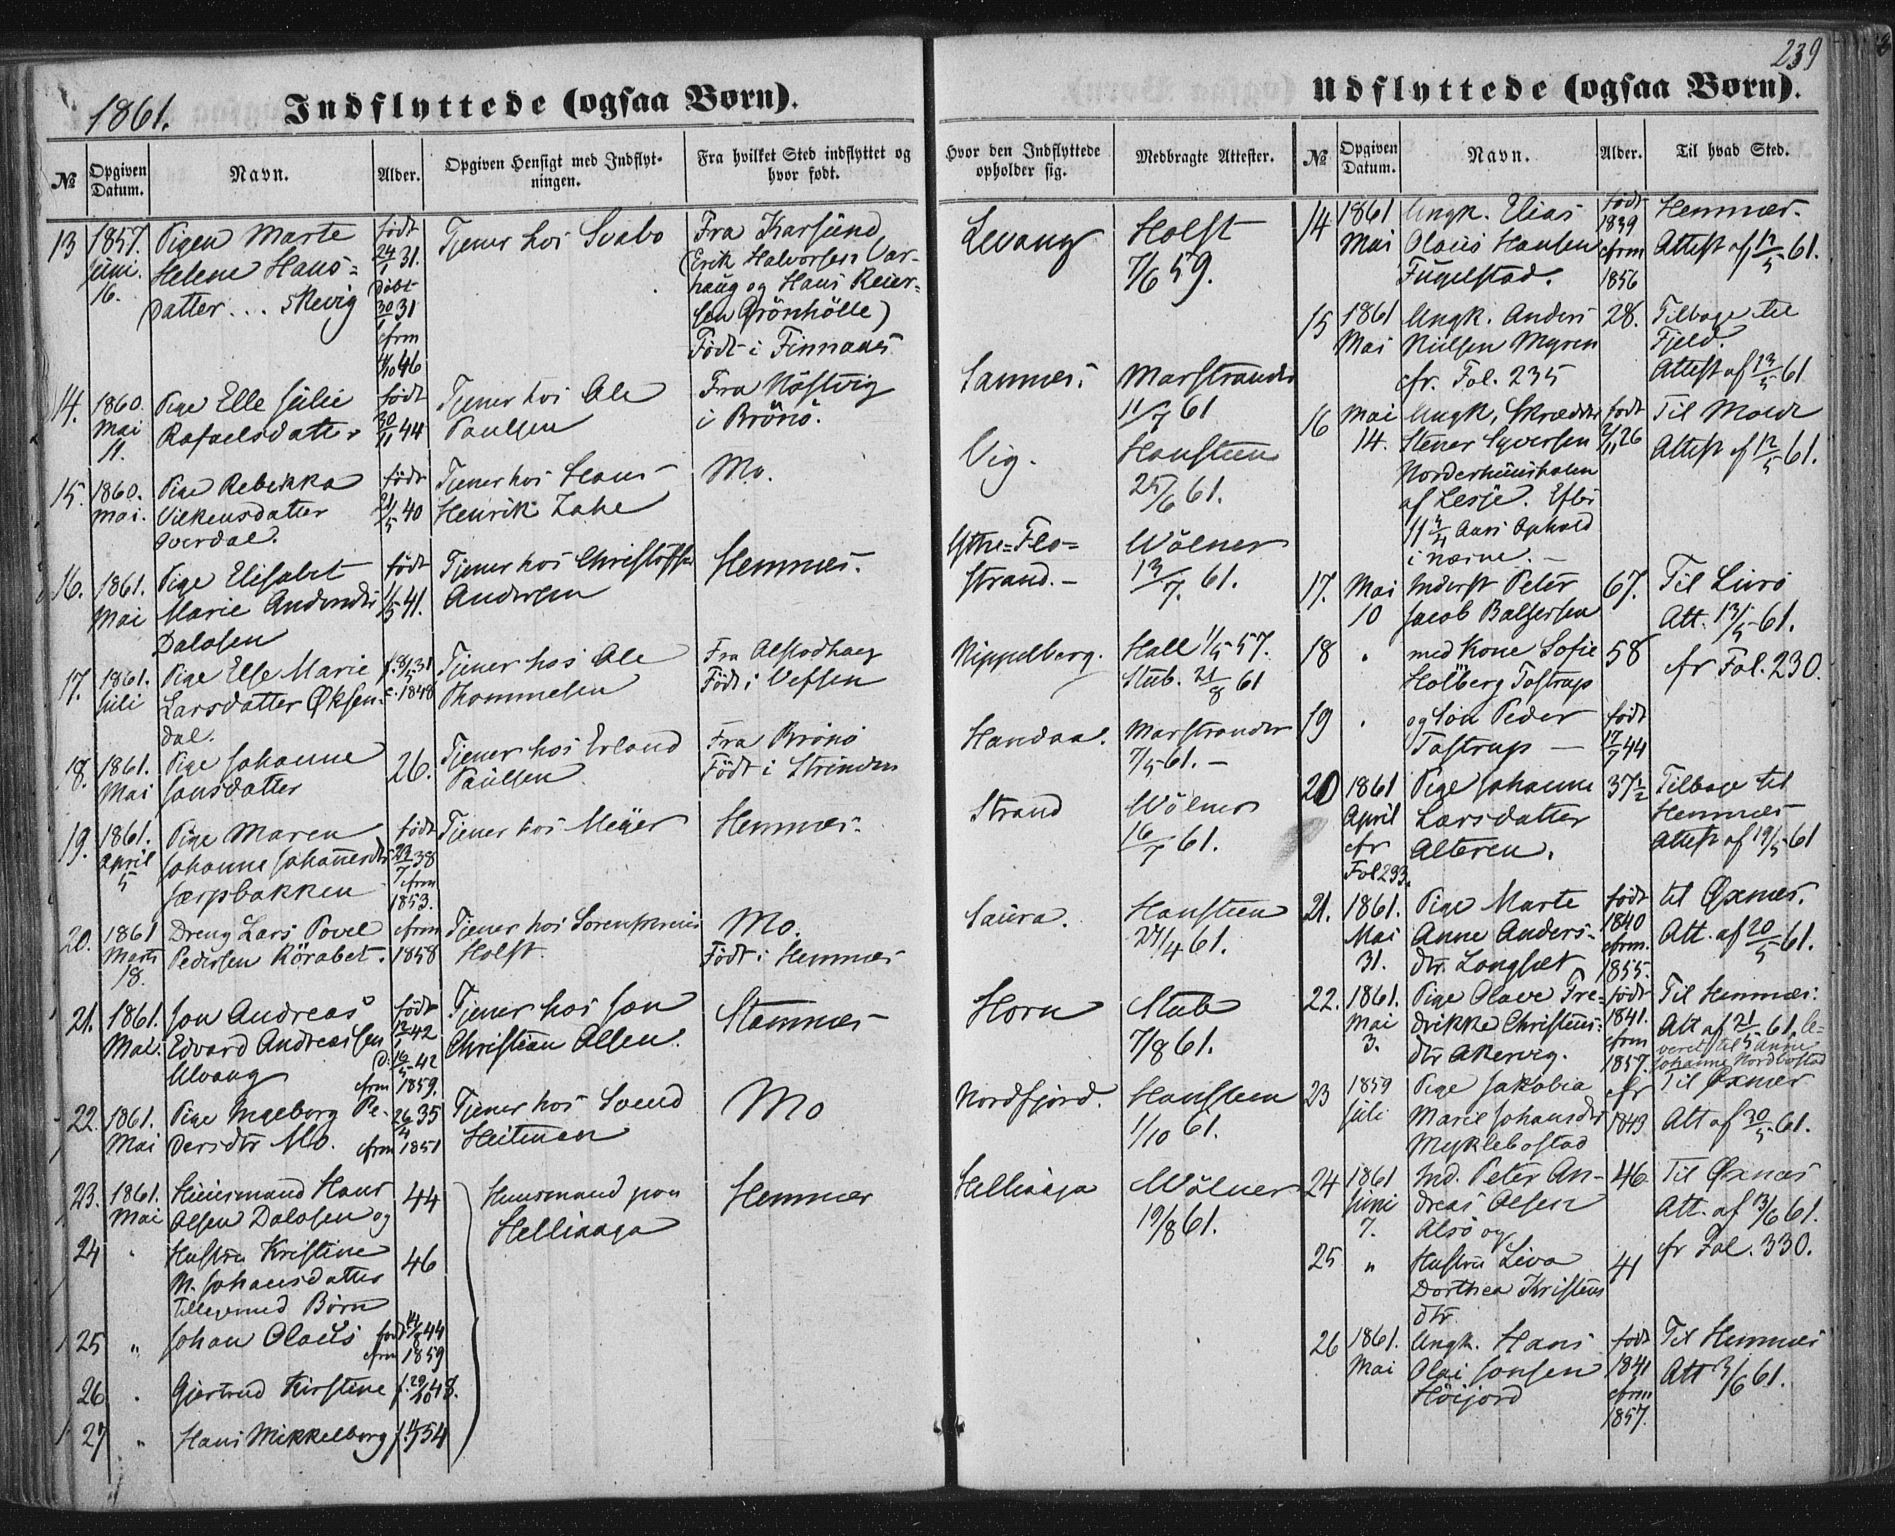 239
1861. Indflyttede (ogsaa Børn).
Udflyttede (ogsaa Børn).
№ Opgiven Datum. Navn. Alder. Opgiven Hensigt med Indflytningen. Fra hvilket Sted indflyttet og hvor født. Hvor den Indflyttede opholder sig. Medbragte Attester.
№ Opgiven Datum. Navn. Alder. Til hvad Sted.
13 1857. Pigen Marte født Tjener hos Svabo Fra Karsund Levang Holst
Juni 16. Helene Hans= 24/1 31. (Erik Halvorsen Var= 7/6 59.
datter... Skevig døbt 30/1 31 haug og Hans Reier=
cfrm sen Grönhölle)
4/10 46 Født i Finnanes
14. 1860. Pige Elle Julie født Tjener hos Ole Fra Nöstvig Sannes. Marstrander
Mai 11. Rafaelsdatter 30/11 44 Paulsen i Brönö. 11/7 61
15. 1860. Pige Rebekka født Tjener hos Hans Mo. Vig. Hansteen
Mai. Vilkensdatter 21/5 40 Henrik Zahe 25/6 61.
Overdal.
16. 1861. Pige Elisabet født Tjener hos Christoffer Hemnes. Ytre=Flo= Wölner
Mai Marie Andersdtr 1/5 41. Andersen strand. 13/7. 61.
Dalosen
17. 1861. Pige Else Marie f. 8/5 31 Tjener hos Ole Fra Alstadhaug Nippelberg. Hall 1/5 57.
Juli Larsdatter Øksen= c. 1848 Thommesen Født i Vefsen Stub. 21/8 61
dal.
18. 1861. Pige Johanne 26. Tjener hos Erland Fra Brönö Handaa. Marstrander
Mai Jonsdatter Paulsen Født i Strinden 7/5 61.
19. 1861. Pige Maren født Tjener hos Meyer Hemnes. Strand Wölner
April 5 Johanne Johannesdtr 29/7 38 16/7 61.
Jærpbakken cfrm 1853.
20. 1861 Dreng Lars Povel cfrm Tjener hos Mo. Saura. Hansteen
Marts 18. Pedersen Rörabet. 1858 Holst. Født i Hemnes 27/4 61.
21. 1861. Jon Andreas født Tjener hos Jon Stamnes Horn Stub
Mai. Edvard Andreassen 12/1 42 Christian Olsen. 7/8 61.
Ulvang d. 16/5 42
cfrm 1859.
22. 1861. Pige Ingeborg Pe= 26/4 35 Tjener hos Svend Mo Nordfjord. Hansteen
Mai dersdtr Mo. cfrm 1851 Heitman 1/10 61.
23. 1861. Huusmand Hans 44 Huusmand paa Hemnes Hellaaga Wölner
Mai Olsen Dalosen og Hellaaga 19/8 61.
24 " Hustru Kristine 46
M. Johansdatter
tilligemed Børn
25 " Johan Olaus født 14/8 44
cfrm 1859
26 " Gjertrud Kirstine f. 29/10 48.
27 " Hans Mikkelborg f. 11/7 54
14 1861 Ungk. Elias født Hemnes.
Mai Olaus Hansen 1839 Attest af 12/5 61.
Fugelstad. cfrm 1856
15 1861 Ungk. Anders 28. Tilbage til
Mai Nielsen Myren Fjeld.
cfr. Fol. 235 Attest af 13/5 61
16 Mai Ungk, Skrædder født Til Molde
14. Stener Syversen 2/11 26 Attest af 12/5 61.
Norderhuushalen
af Lesje. Efter
11 3/4 Aars Ophold
i Næsne.
17. Mai Inderst Peter 67. Til Lurö
10 Jacob Balzersen Att. 13/5 61.
18 " med Kone Sofie 58 cfr Fol. 230.
Holberg Tostrup
19 " og Søn Peder født
Tostrup 17/7 44
20 1861 Pige Johanne 37½ Tilbage til
April Larsdatter Hemnes
cfr Alteren. Attest af 19/5 61
Fol 233.
21. 1861. Pige Marte født til Øxnes.
Mai Anne Anders= 1840 Att. af 20/5 61.
31. dtr. Langset cfrm. 1855.
22. 1861. Pige Olave Fre= født Til Hemnes.
Mai drikke Christens= 1841. Att af 21/5 61. le=
3. dtr Akervig. cfrm veret til Anne
1857. Johanne Nordbostad
23 1859 Pige Jakobia cfr Til Øxnes
Juli Marie Johansdtr 1843 Att af 30/5 61.
Myklebostad
24 1861 Ind. Peter An= 46. Til Øxnæs
Juni dreas Olsen Att. af 13/6 61.
7. Alsö og cfr Fol. 330.
25 " Hustru Liva 41
Dorthea Kristens
dtr.
26 1861. Ungk. Hans født Til Hemnes
Mai Olai Jonsen 1841 Att 3/6 61.
Höijord cfrm
1857.